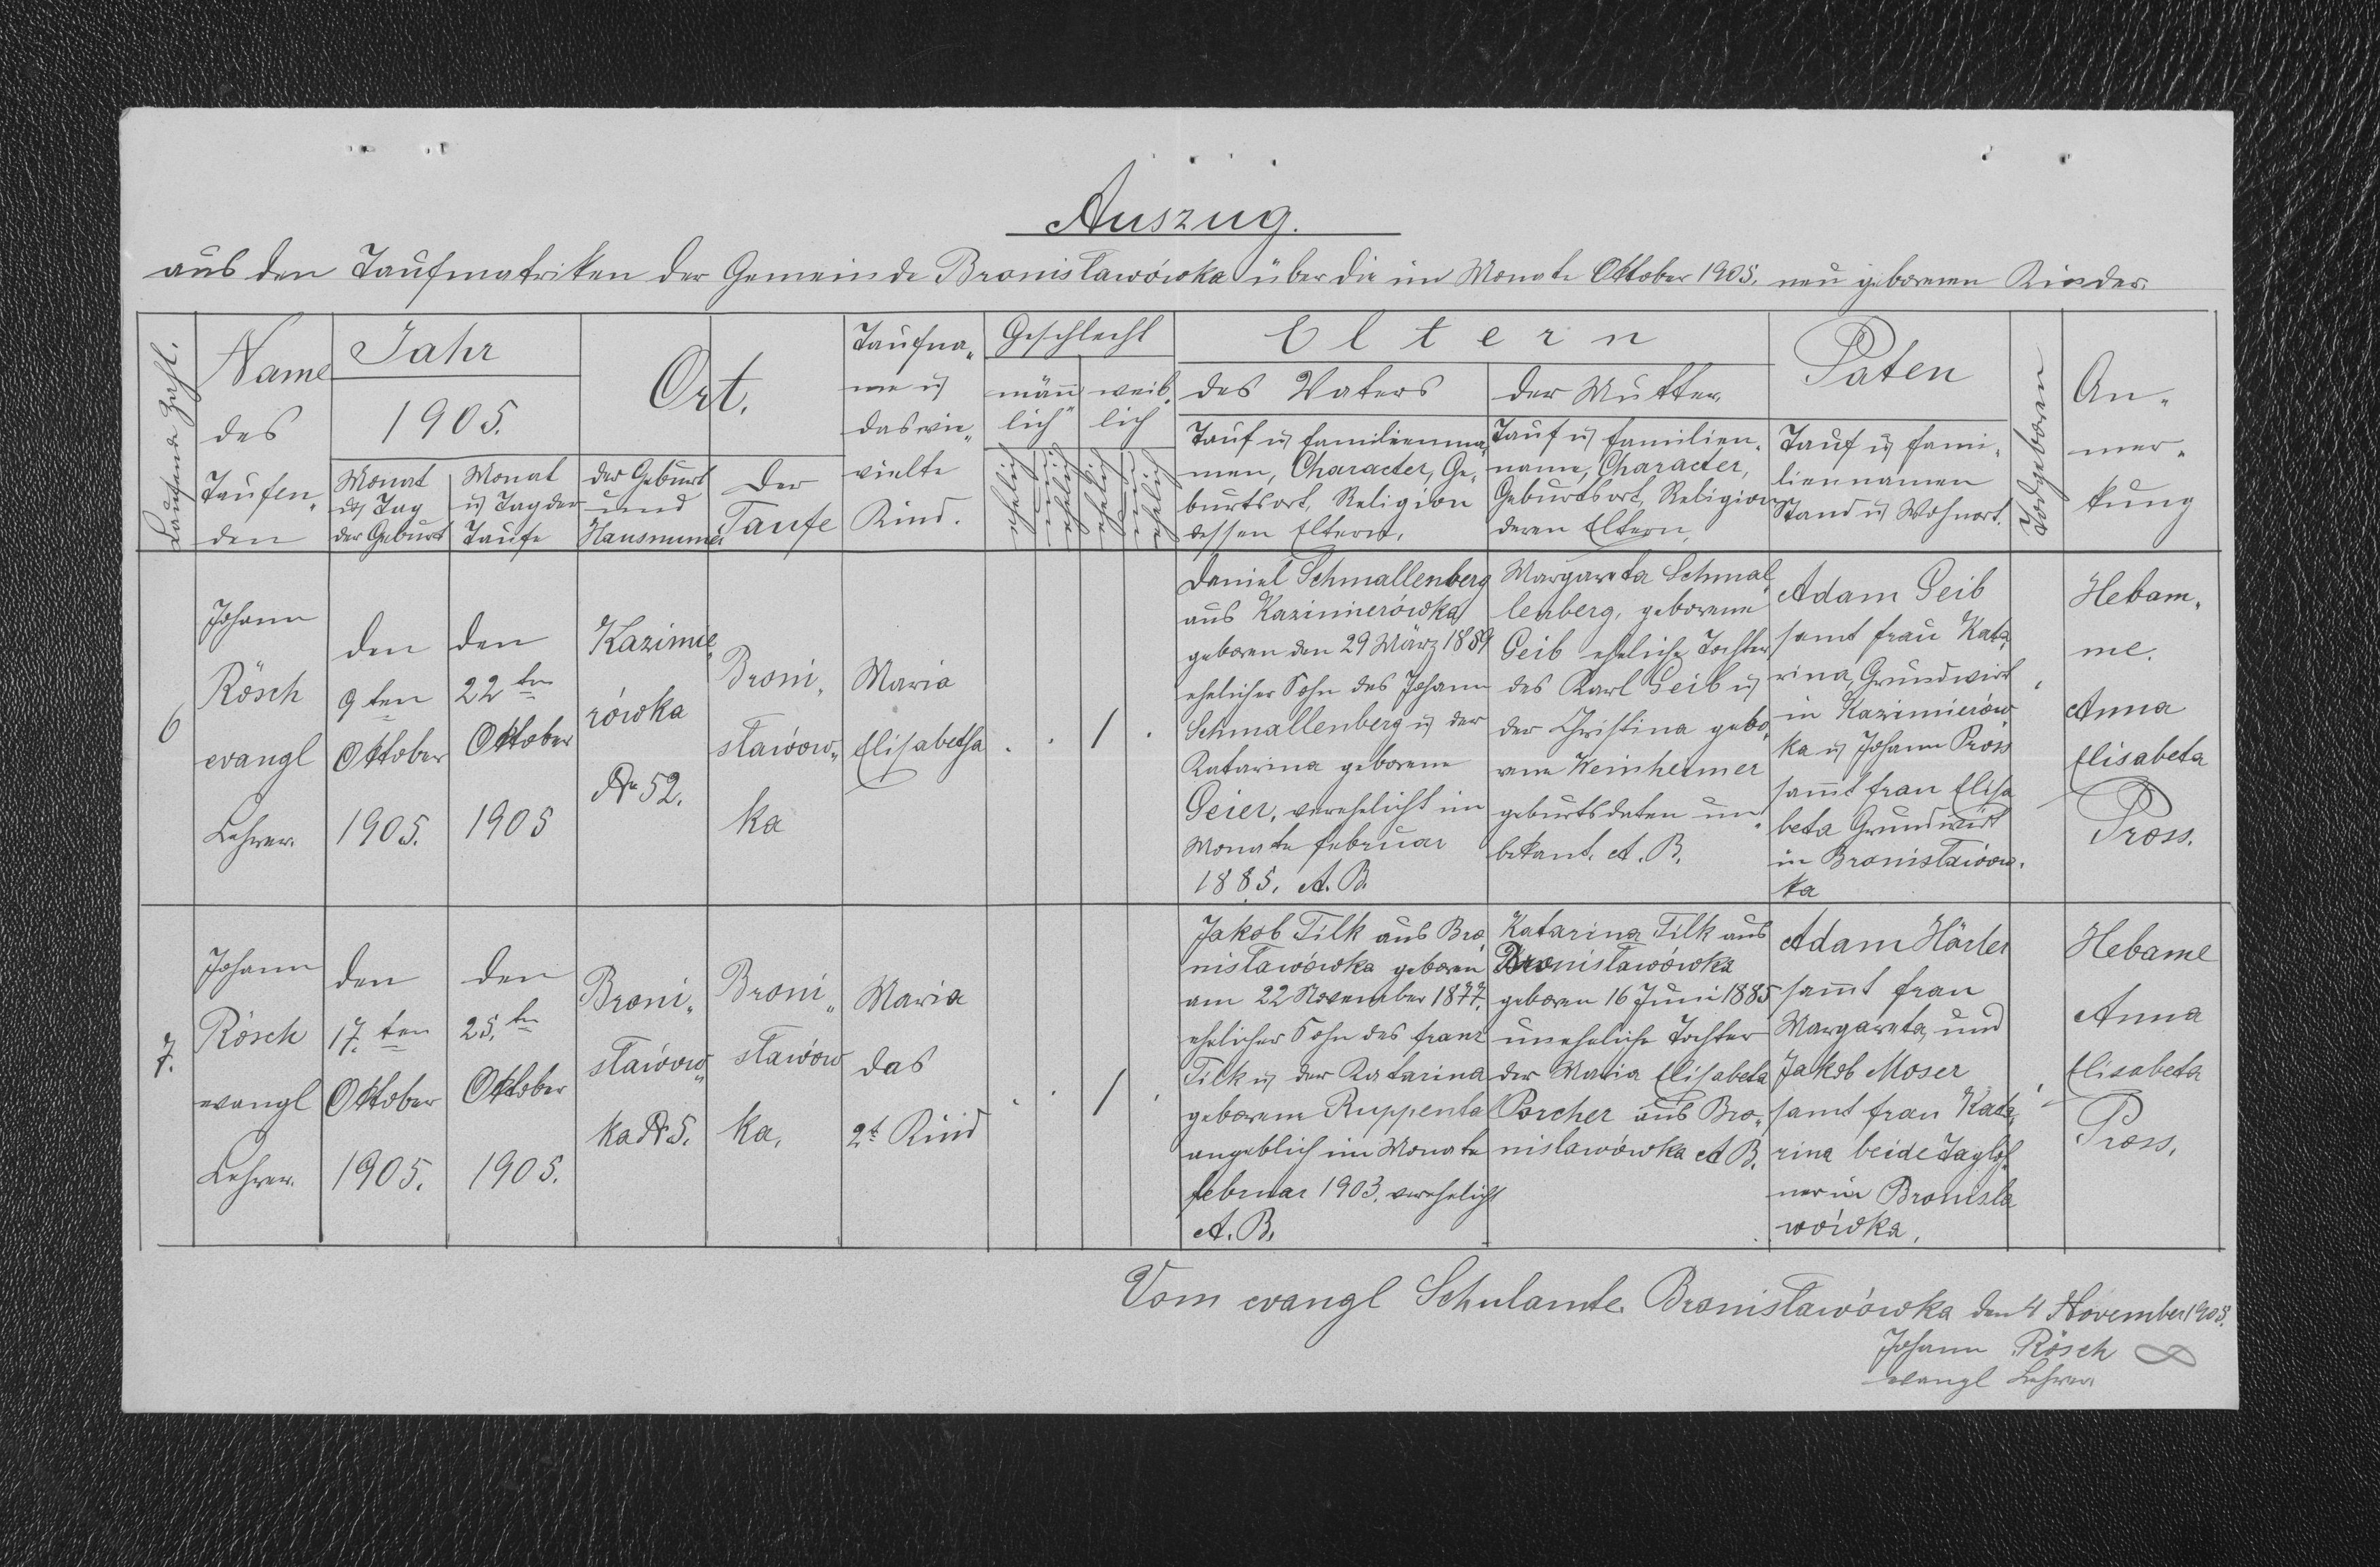 Auszug.
aus den Taufmatriken der Gemeinde Bronisławówka über die im Monate Oktober 1905. neu geborenen Kinder.
Laufende Zahl.
Name
des
Taufen„
den
Jahr
1905.
Monat
u Tag
der Geburt
Monat
u Tag der
Taufe
Ort.
der Geburt
und
Hausnumer
der
Taufe
Taufna„
me u
das wie„
vielte
Kind.
Geschlecht
männ
lich
weib„
lich
ehelich
un„
ehelich
ehelich
un„
ehelich
Eltern
des Vaters
Tauf u Familienna„
men, Character, Ge„
burtsort, Religion
dessen Eltern.
der Mutter
Tauf u Familien„
name, Character,
Geburtsort, Religion
deren Eltern,
Paten
Tauf u Fami„
liennamen
Stand u Wohnort.
Todgeboren
An„
mer„
kung
6
Johann
Rösch
evangl
Lehrer.
den
9ten
Oktober
1905.
den
22ten
Oktober
1905
Kazimie„
rówka
No 52.
Broni„
sławów„
ka
Maria
Elisabetha
1
Daniel Schmallenberg
aus Kazimierówka
geboren den 29 März 1859
ehelicher Sohn des Johann
Schmallenberg u der
Katarina geborene
Geier, verehelicht im
Monate Februar
1885. A. B.
Margareta Schmal„
lenberg, geborene
Geib eheliche Tochter
des Karl Geib u
der Christina gebo„
rene Weinheimer
geburtsdaten un„
bekant. A. B.
Adam Geib
samt Frau Kata„
rina, Grundwirt
in Kazimierów„
ka u Johann Pross
sammt Frau Elisa
beta Grundwirt
in Bronisławów„
ka
Hebam„
me.
Anna
Elisabeta
Pross.
7.
Johann
Rösch
evangl
Lehrer.
den
17. ten
Oktober
1905.
den
25. ten
Oktober
1905.
Broni„
sławów„
ka No 5.
Broni„
sławów
ka,
Maria
das
2t Kind
1
Jakob Filk aus Bro„
nisławówka geboren
am 22 November 1877.
ehelicher Sohn des Franz
Filk u der Katarina
geborene Ruppental
angeblich im Monate
Februar 1903. verehelicht
A. B.
Katarina Filk aus
Bronisławówka
geboren 16 Juni 1885
uneheliche Tochter
der Maria Elisabeta
Porcher aus Bro„
nislawówka A B.
Adam Härter
sammt Frau
Margareta, und
Jakob Moser
samt Frau Kata„
rina beide Taglöh
ner in Bronisla
wówka.
Hebame
Anna
Elisabeta
Pross.
Vom evangl Schulamte. Bronisławówka den 4 November 1905.
Johann Rösch
evangl Lehrer